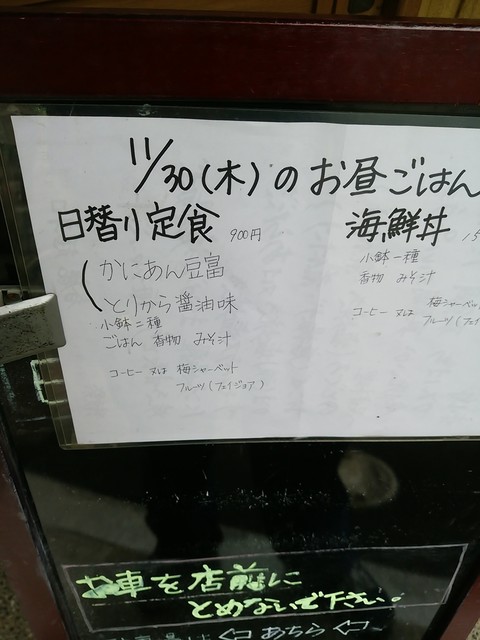 11/30(木)のお昼ごはん
日替り定食 900円
かにあん豆富
とりから醤油味
小鉢二種
ごはん 香物 みそ汁
コーヒー 又は 梅シャーベット
フルーツ(フェイジョア)
海鮮丼 15
小鉢一種
香物 みそ汁
コーヒー 又は 梅シャーベット
フルーツ(フェイ
お車を店前に
とめないで下さい。
あちら